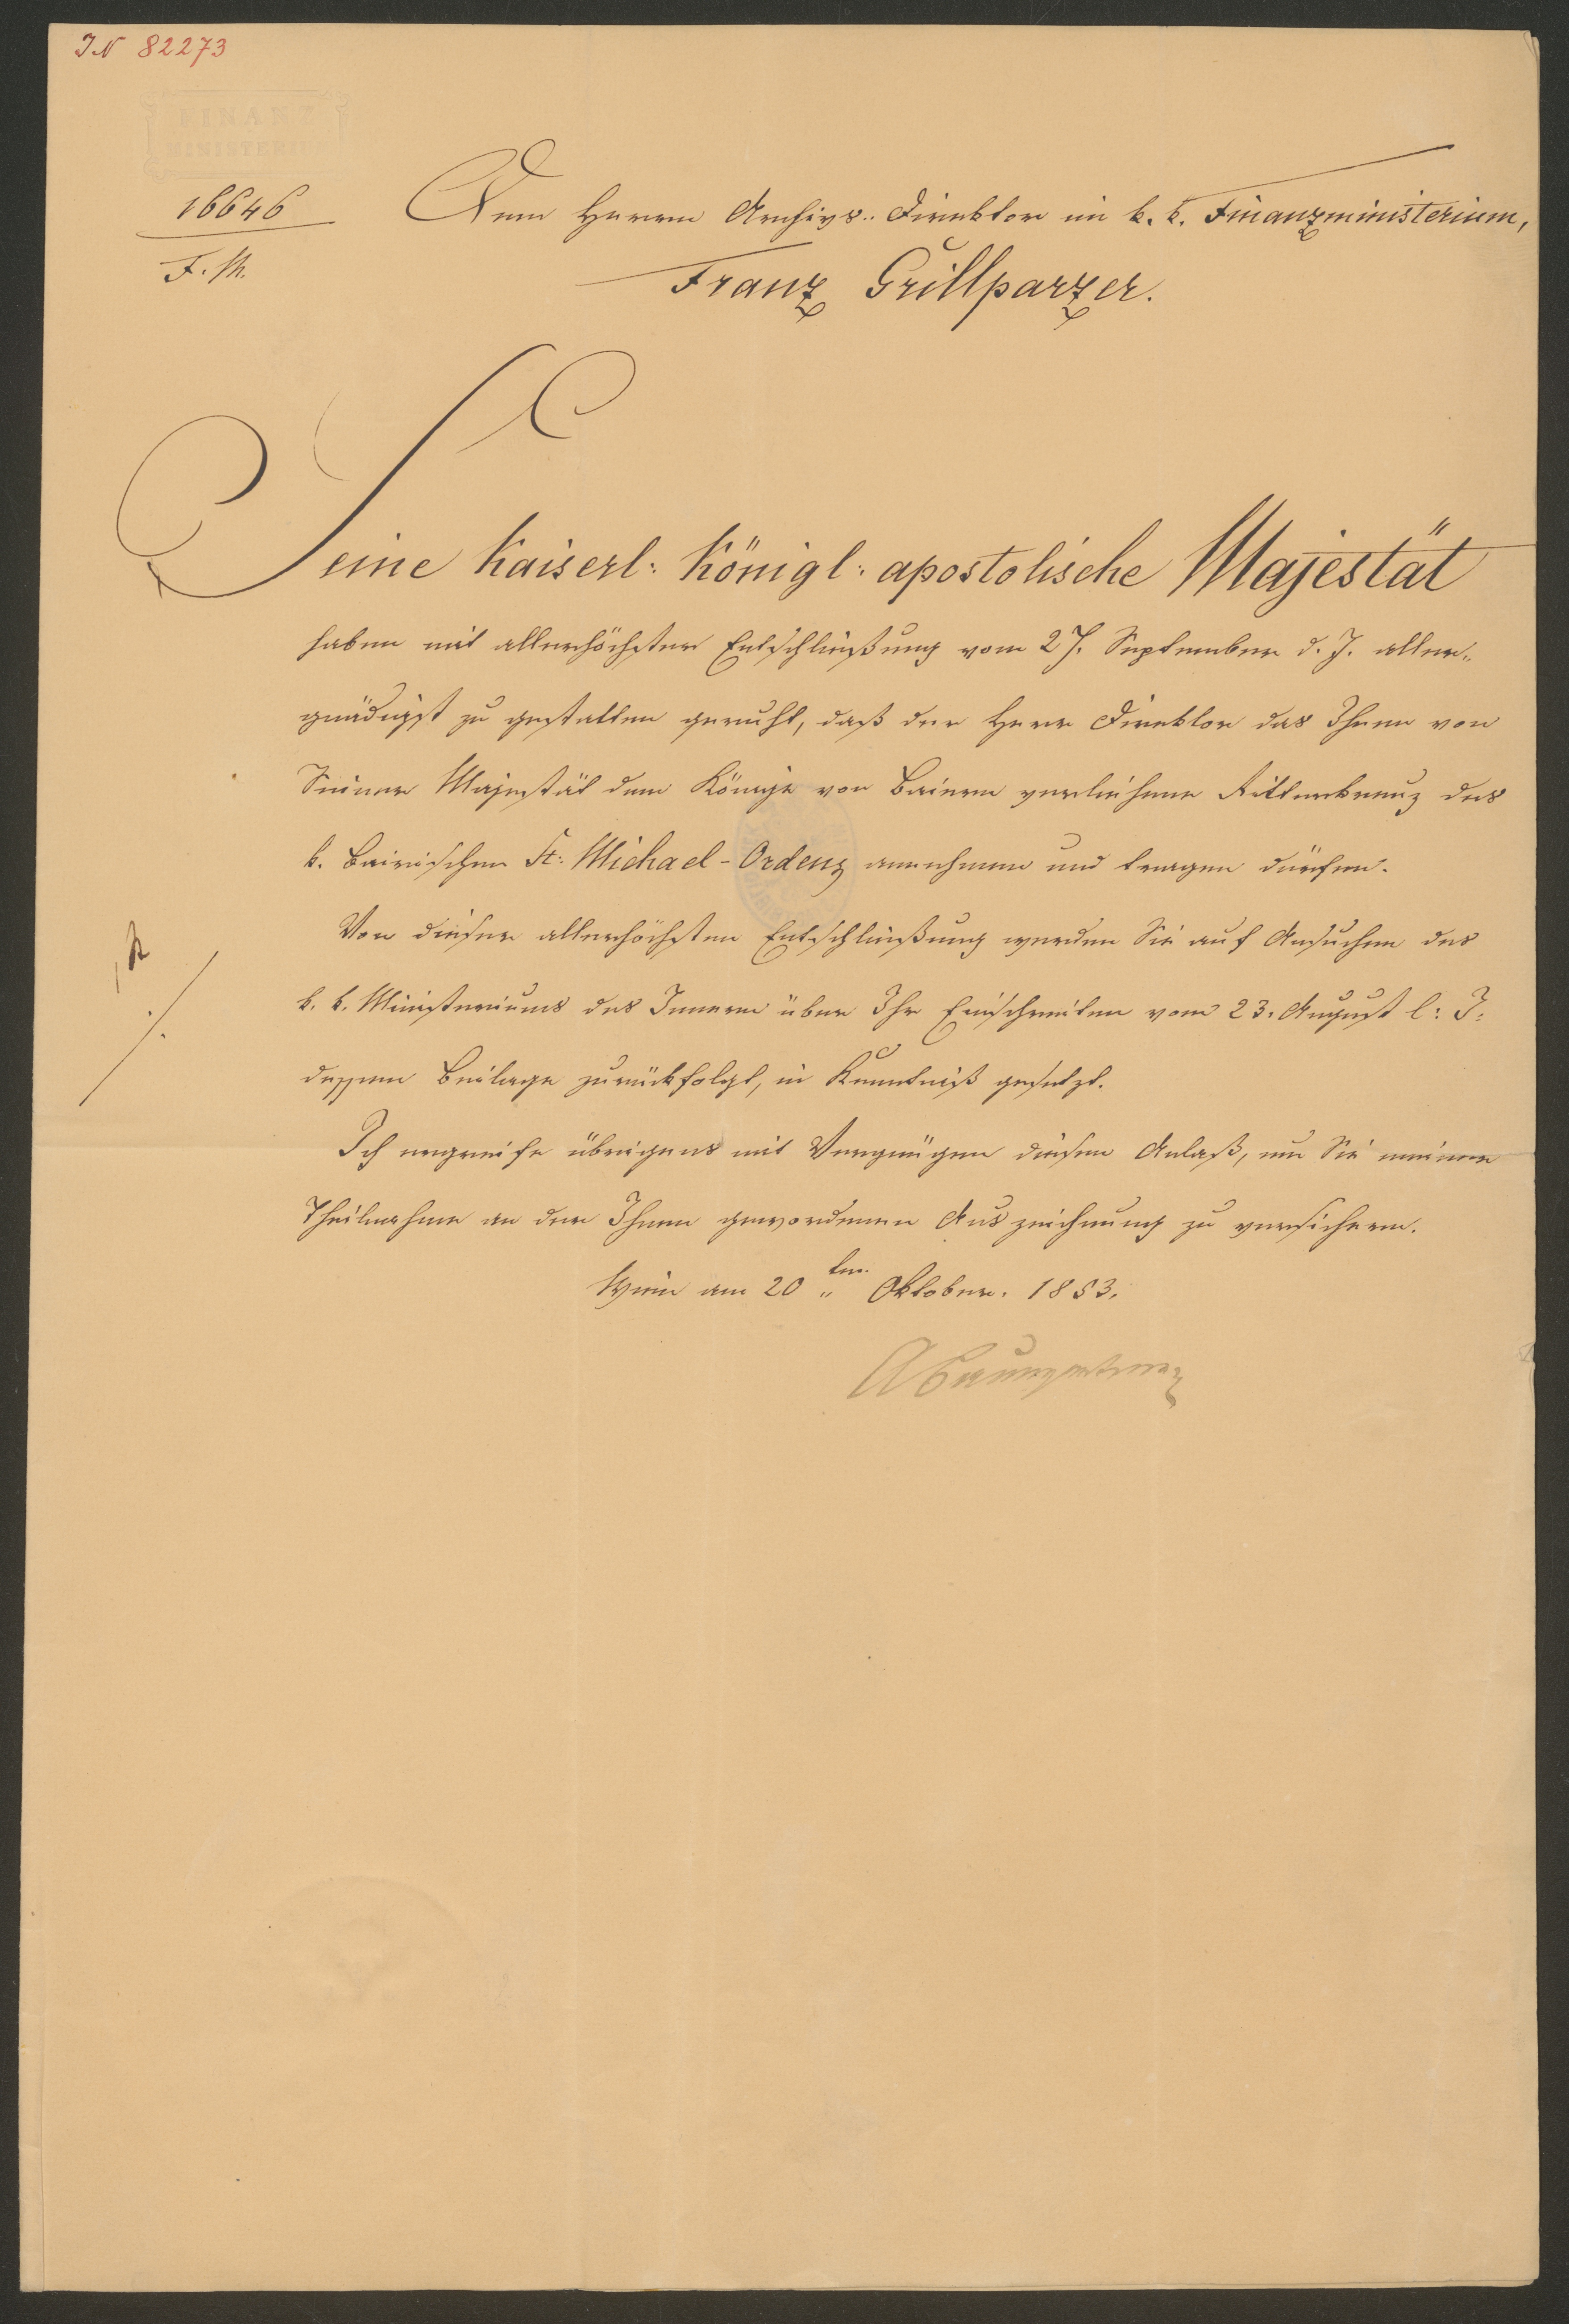 IN 82273
FINANZ
MINISTERIUM
16646
F. M.
Dem Herrn Archivs-Direktor im k. k. Finanzministerium,
Franz Grillparzer.
Seine Kaiserl: Königl: apostolische Majestät
haben mit allerhöchster Entschließung vom 27. September d. J. aller-
gnädigst zu gestatten geruht, daß der Herr Direktor das Ihnen von
Seiner Majestät dem Könige von Baiern verliehene Ritterkreuz des
k. bairischen St: Michael-Ordens annehmen und tragen dürfen.
Von dieser allerhöchsten Entschließung werden Sie auf Ansuchen des
k. k. Ministeriums des Innern über Ihr Einschreiten vom 23. August l: J:
dessen Beilage zurückfolgt, in Kenntniß gesetzt.
Ich ergreife übrigens mit Vergnügen diesen Anlaß, um Sie meiner
Theilnahme an der Ihnen gewordenen Auszeichnung zu versichern.
Wien am 20ten Oktober. 1853.
ABaumgartner